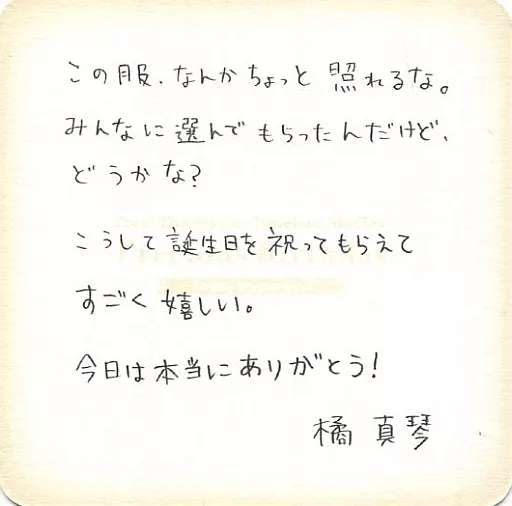 この服、なんかちょっと照れるな。
みんなに選んでもらったんだけど、
どうかな?
こうして誕生日を祝ってもらえて
すごく嬉しい。
今日は本当にありがとう!
橘 真琴